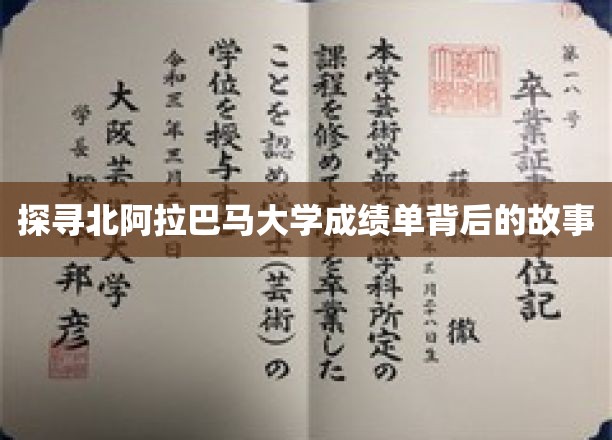 第一八号
卒業証書 学位記
藤 徹
三月二十八日生
本学芸術学部 学科所定の
課程を修めて本学を卒業した
ことを認め学士(芸術)の
学位を授与す
令和三年三月 日
大阪芸術大学
学長 塚本邦彦
探寻北阿拉巴马大学成绩单背后的故事